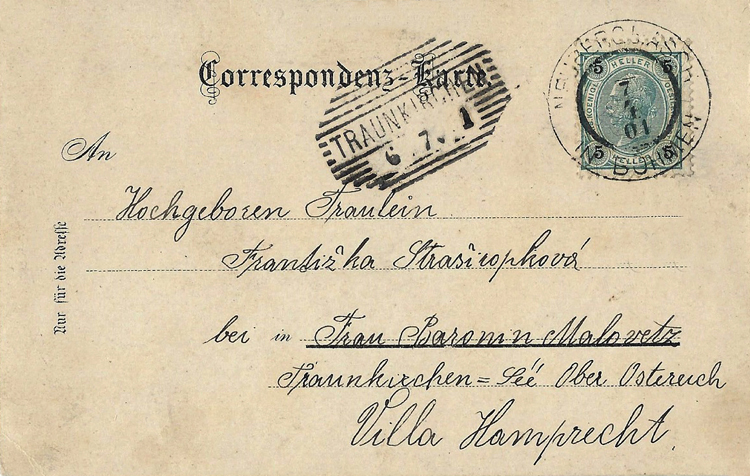 Correspondenz-Karte.
TRAUNKIRCHEN
6 7 1
5 HELLER 5
7
01
5 HELLER 5
IN BÖHMEN
An
Hochgeboren Fraulein
Nur für die Adresse
Frantižka
bei in Frau Baronin Malovetz
Traunkirchen=Séé Ober Ostereich
Villa Hamprecht.